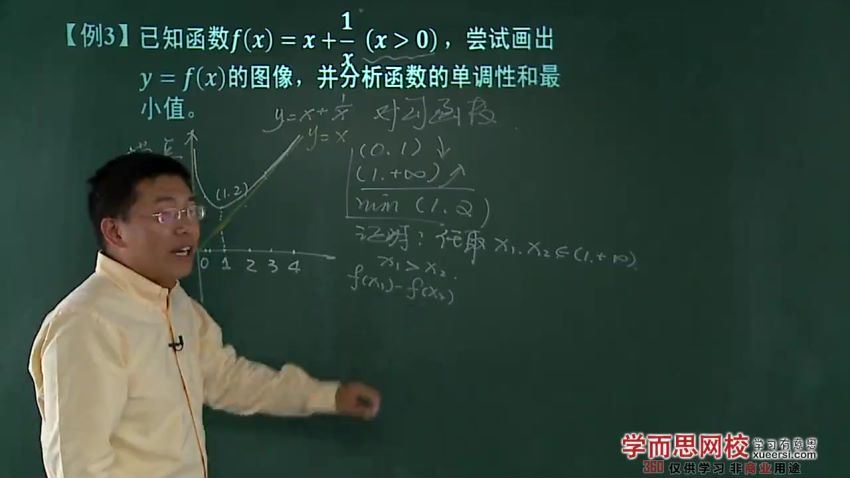 【例3】已知函数f(x) = x + 1/x (x > 0)，尝试画出
y = f(x)的图像，并分析函数的单调性和最
小值。
y = x + 1/x 对勾函数
y = x
(0.1) ↓
(1.+∞) ↗
min (1.2)
证明：任取 x₁. x₂ ∈ (1.+∞)
x₁ > x₂.
f(x₁) - f(x₂)
(1.2)
0 1 2 3 4
学而思网校 学习有意思
xueersi.com
360 仅供学习 非商业用途